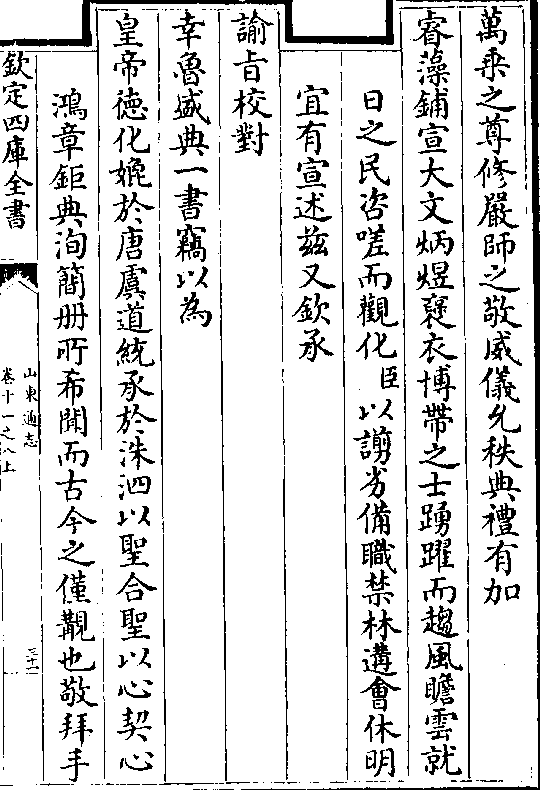 萬乗之尊修嚴師之敬威儀允秩典禮有加
睿藻鋪宣大文炳煜褎衣博帶之士踴躍而趨風瞻雲就
日之民咨嗟而觀化臣以謭劣備職禁林遘會休明
宜有宣述兹又欽承
諭旨校對
幸魯盛典一書竊以為
皇帝徳化媲於唐虞道統承於洙泗以聖合聖以心契心
鴻章鉅典洵簡册所希聞而古今之僅覯也敬拜手
欽定四庫全書
山東通志
卷十一之八上
三十一